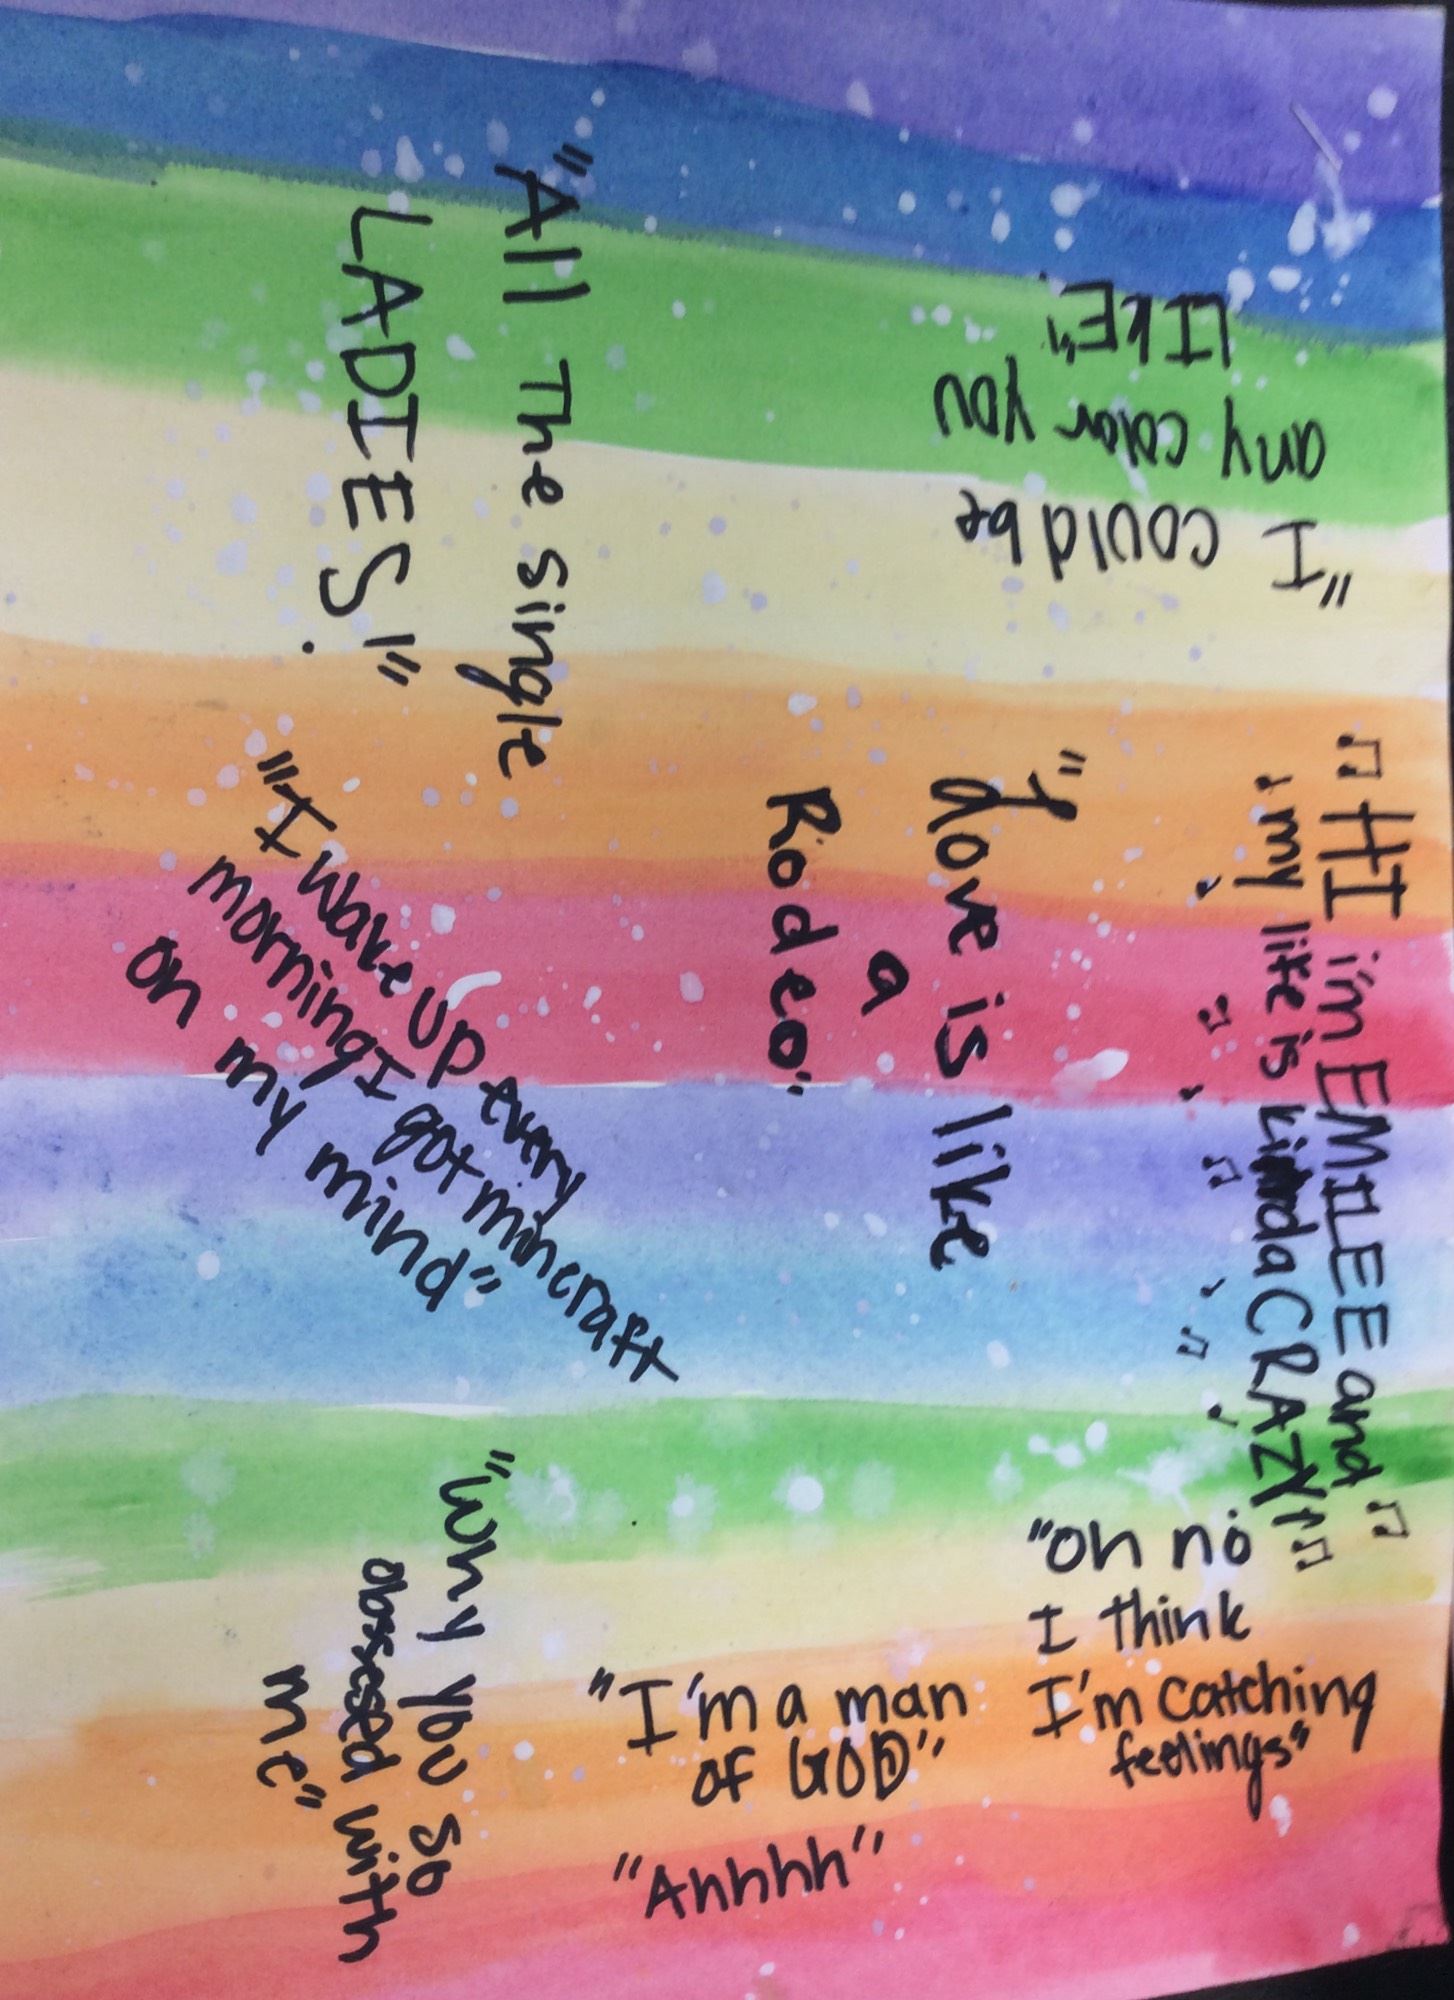 "All The Single
LADIES!"
"I could be
any color you
LIKE"
♫ HI i'm EMILEE and ♫
♪ my life is kinda CRAZY! ♫
"Love is like
a
Rodeo"
"I wake up every
morning I got mincraft
on my mind"
"Oh no
I think
I'm catching
feelings"
"I'm a man
of GOD"
"Ahhhh"
"Why you so
obsesed with
me"